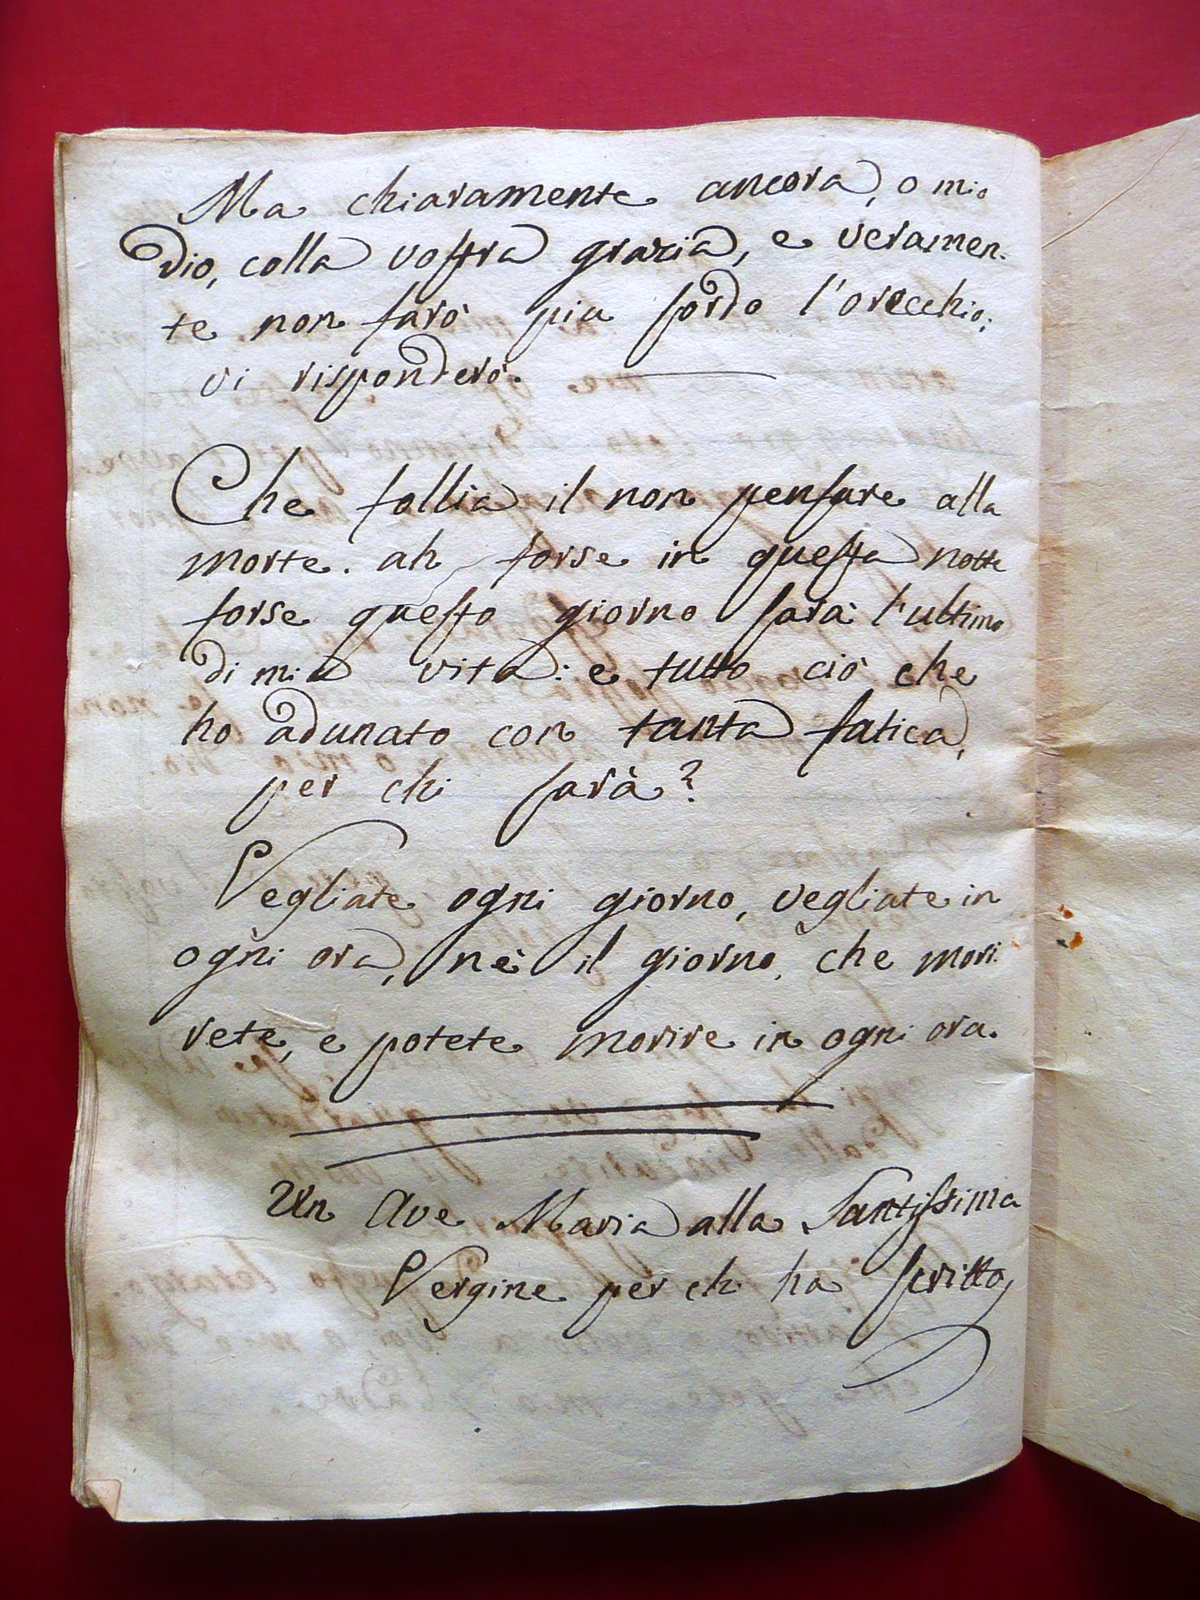 Ma chiaramente ancora, o mio
dio, colla vostra grazia, e veramen-
te non farò piu sordo l'orecchio;
vi risponderò.
Che follia il non pensare alla
morte. ah forse in questa notte
forse questo giorno sarà l'ultimo
di mia vita: e tutto ciò che
ho adunato con tanta fatica,
per chi sarà?
Vegliate ogni giorno, vegliate in
ogni ora, nè il giorno, che mori
rete, e potete morire in ogni ora.
Un Ave Maria alla Santissima
Vergine per chi ha scritto